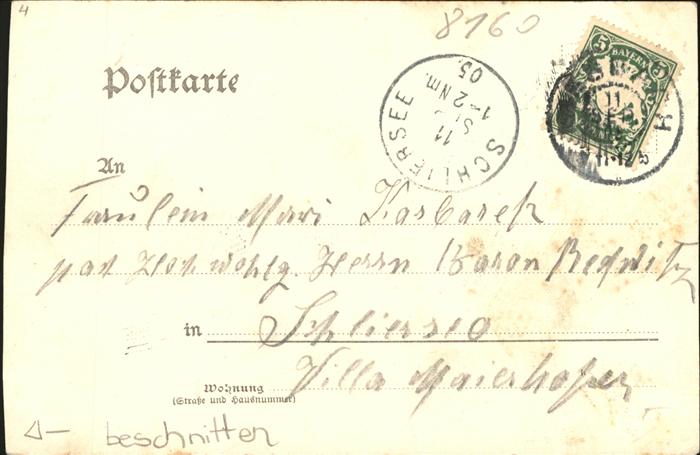 4
8160
5 BAYERN 5
11
11-12
SCHLIERSEE
11
1-2 Nm.
05.
Postkarte
An
Fräulein Mari
Hochwohlg. Herrn Baron Redwitz
in Schliersee
Villa Maierhofer
Wohnung
(Straße und Hausnummer)
beschnitten